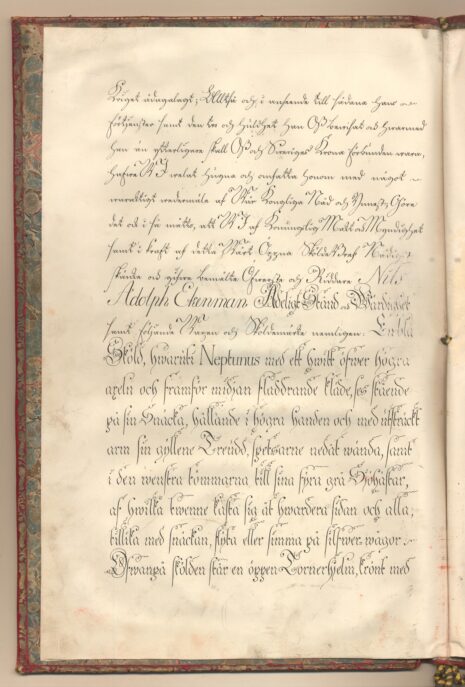 Kriget ådagalagt; Alltså och i anseende till sådana Hans
förtjenster samt den tro och huldhet han Oss bewisat och hwarmed
han än ytterligare skall Oss och Sweriges Krona förbunden wara,
hafwe WI welat hugna och omfatta honom med något
warachtigt wedermäle af Wår Kongliga Nåd och Ynnest, Göre
det och i så måtto, att WI af Konungslig Macht och Myndighet
samt i kraft af detta Wårt Öppna Sköldebref Nådigst
skänke och gifwe bemälte Öfwerste och Riddare Nils
Adolph Ekenman Adeligt Stånd och Wärdighet
samt följande Wapen och Sköldemärke nemligen: En blå
Sköld, hwaruti Neptunus med ett hwitt öfwer högra
axeln och framför midjan fladdrande kläde, ses stående
på sin Snäcka, hållande i högra handen och med utsträckt
arm sin gyllene Treudd, spetsarne nedåt wända, samt
i den wenstra tömmarna till sina fyra grå Sjöhästar,
af hwilka twenne kasta sig åt hwardera sidan och alla,
tillika med snäckan, flyta eller simma på silfwer wågor.
Ofwanpå skölden står en öppen Tornerhjelm, krönt med